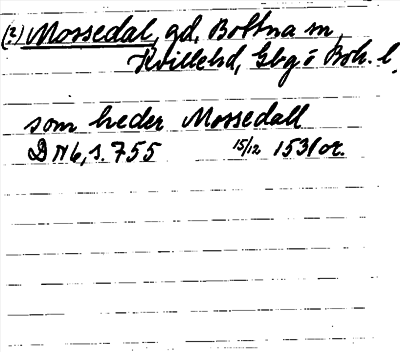 (?) Mossedal, gd, Bottna sn,
Kville hd, Gbg o Boh. l.
som heder Mossedall
DN 6, s. 755 15/12 1531 or.